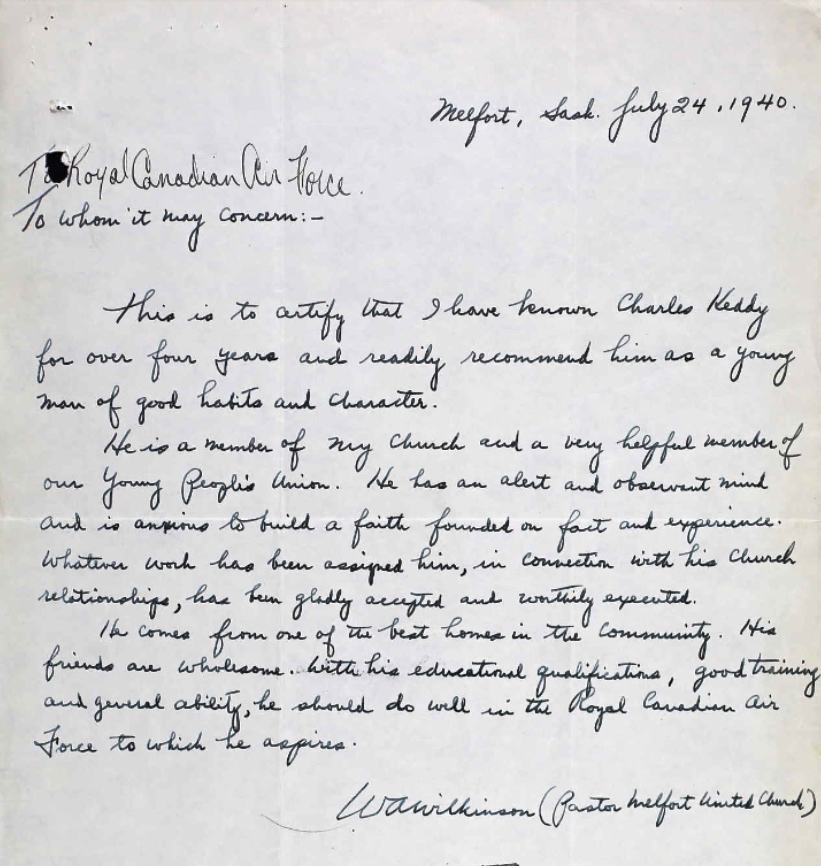 Melfort, Sask. July 24, 1940.
To Royal Canadian Air Force.
To whom it may concern:-
This is to certify that I have known Charles Keddy
for over four years and readily recommend him as a young
man of good habits and character.
He is a member of my Church and a very helpful member of
our Young People's Union. He has an alert and observant mind
and is anxious to build a faith founded on fact and experience.
Whatever work has been assigned him, in connection with his Church
relationships, has been gladly accepted and worthily executed.
He comes from one of the best homes in the community. His
friends are wholesome. With his educational qualifications, good training
and general ability, he should do well in the Royal Canadian Air
Force to which he aspires.
WA Wilkinson (Pastor Melfort United Church)